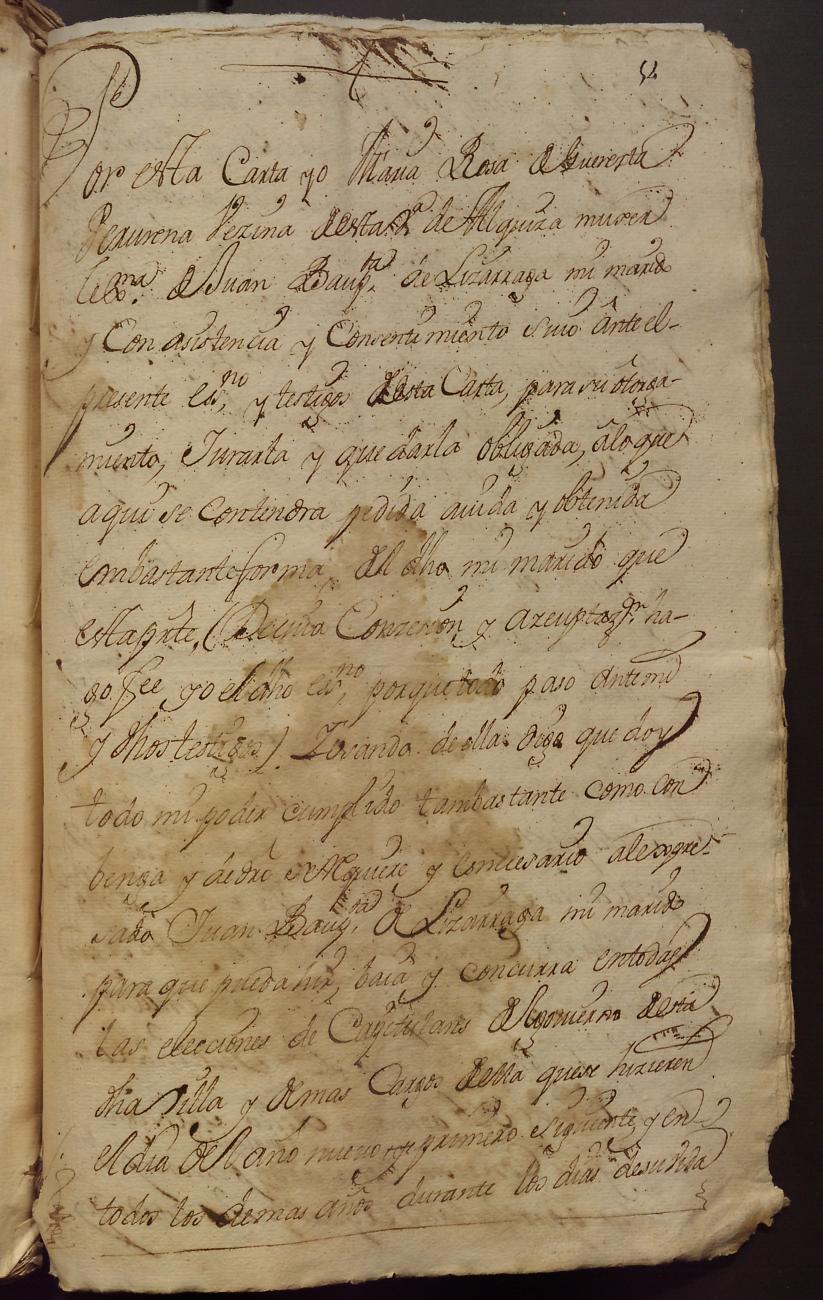 52
Por esta Carta yo Maria Rosa de
Vezina desta Vª de Alquiza muger
lexma. de Juan Bauptta. de Lizarraga mi marido
y Con asistencia y Consentimiento suio ânte el-
presente esno, y testigos desta Carta, para su otorga-
miento, Jurarla y quedarla obligada, âlo que
aqui se contendra pedida avida y obtenida
embastante forma del dho mi marido que
esta prte, (De cuia Conzesion, y azeuptazon ha-
go fee yo el dho esno, porque todo paso ante mi
y dhos testigos) Vssando de ella digo que doy
todo mi poder cumplido tam bastante como con
benga y de dro se Requiere y es necesario al expre-
sado Juan Bauptta. de Lizarraga mi marido
para que pueda hir, baia y concurra en todas
las elecciones de Capitulares del govierno desta
dha Villa y demas Cargos della que se hizieren
el dia del año nuevo primero siguiente, y en
todos los demas años durante los dias de su vida